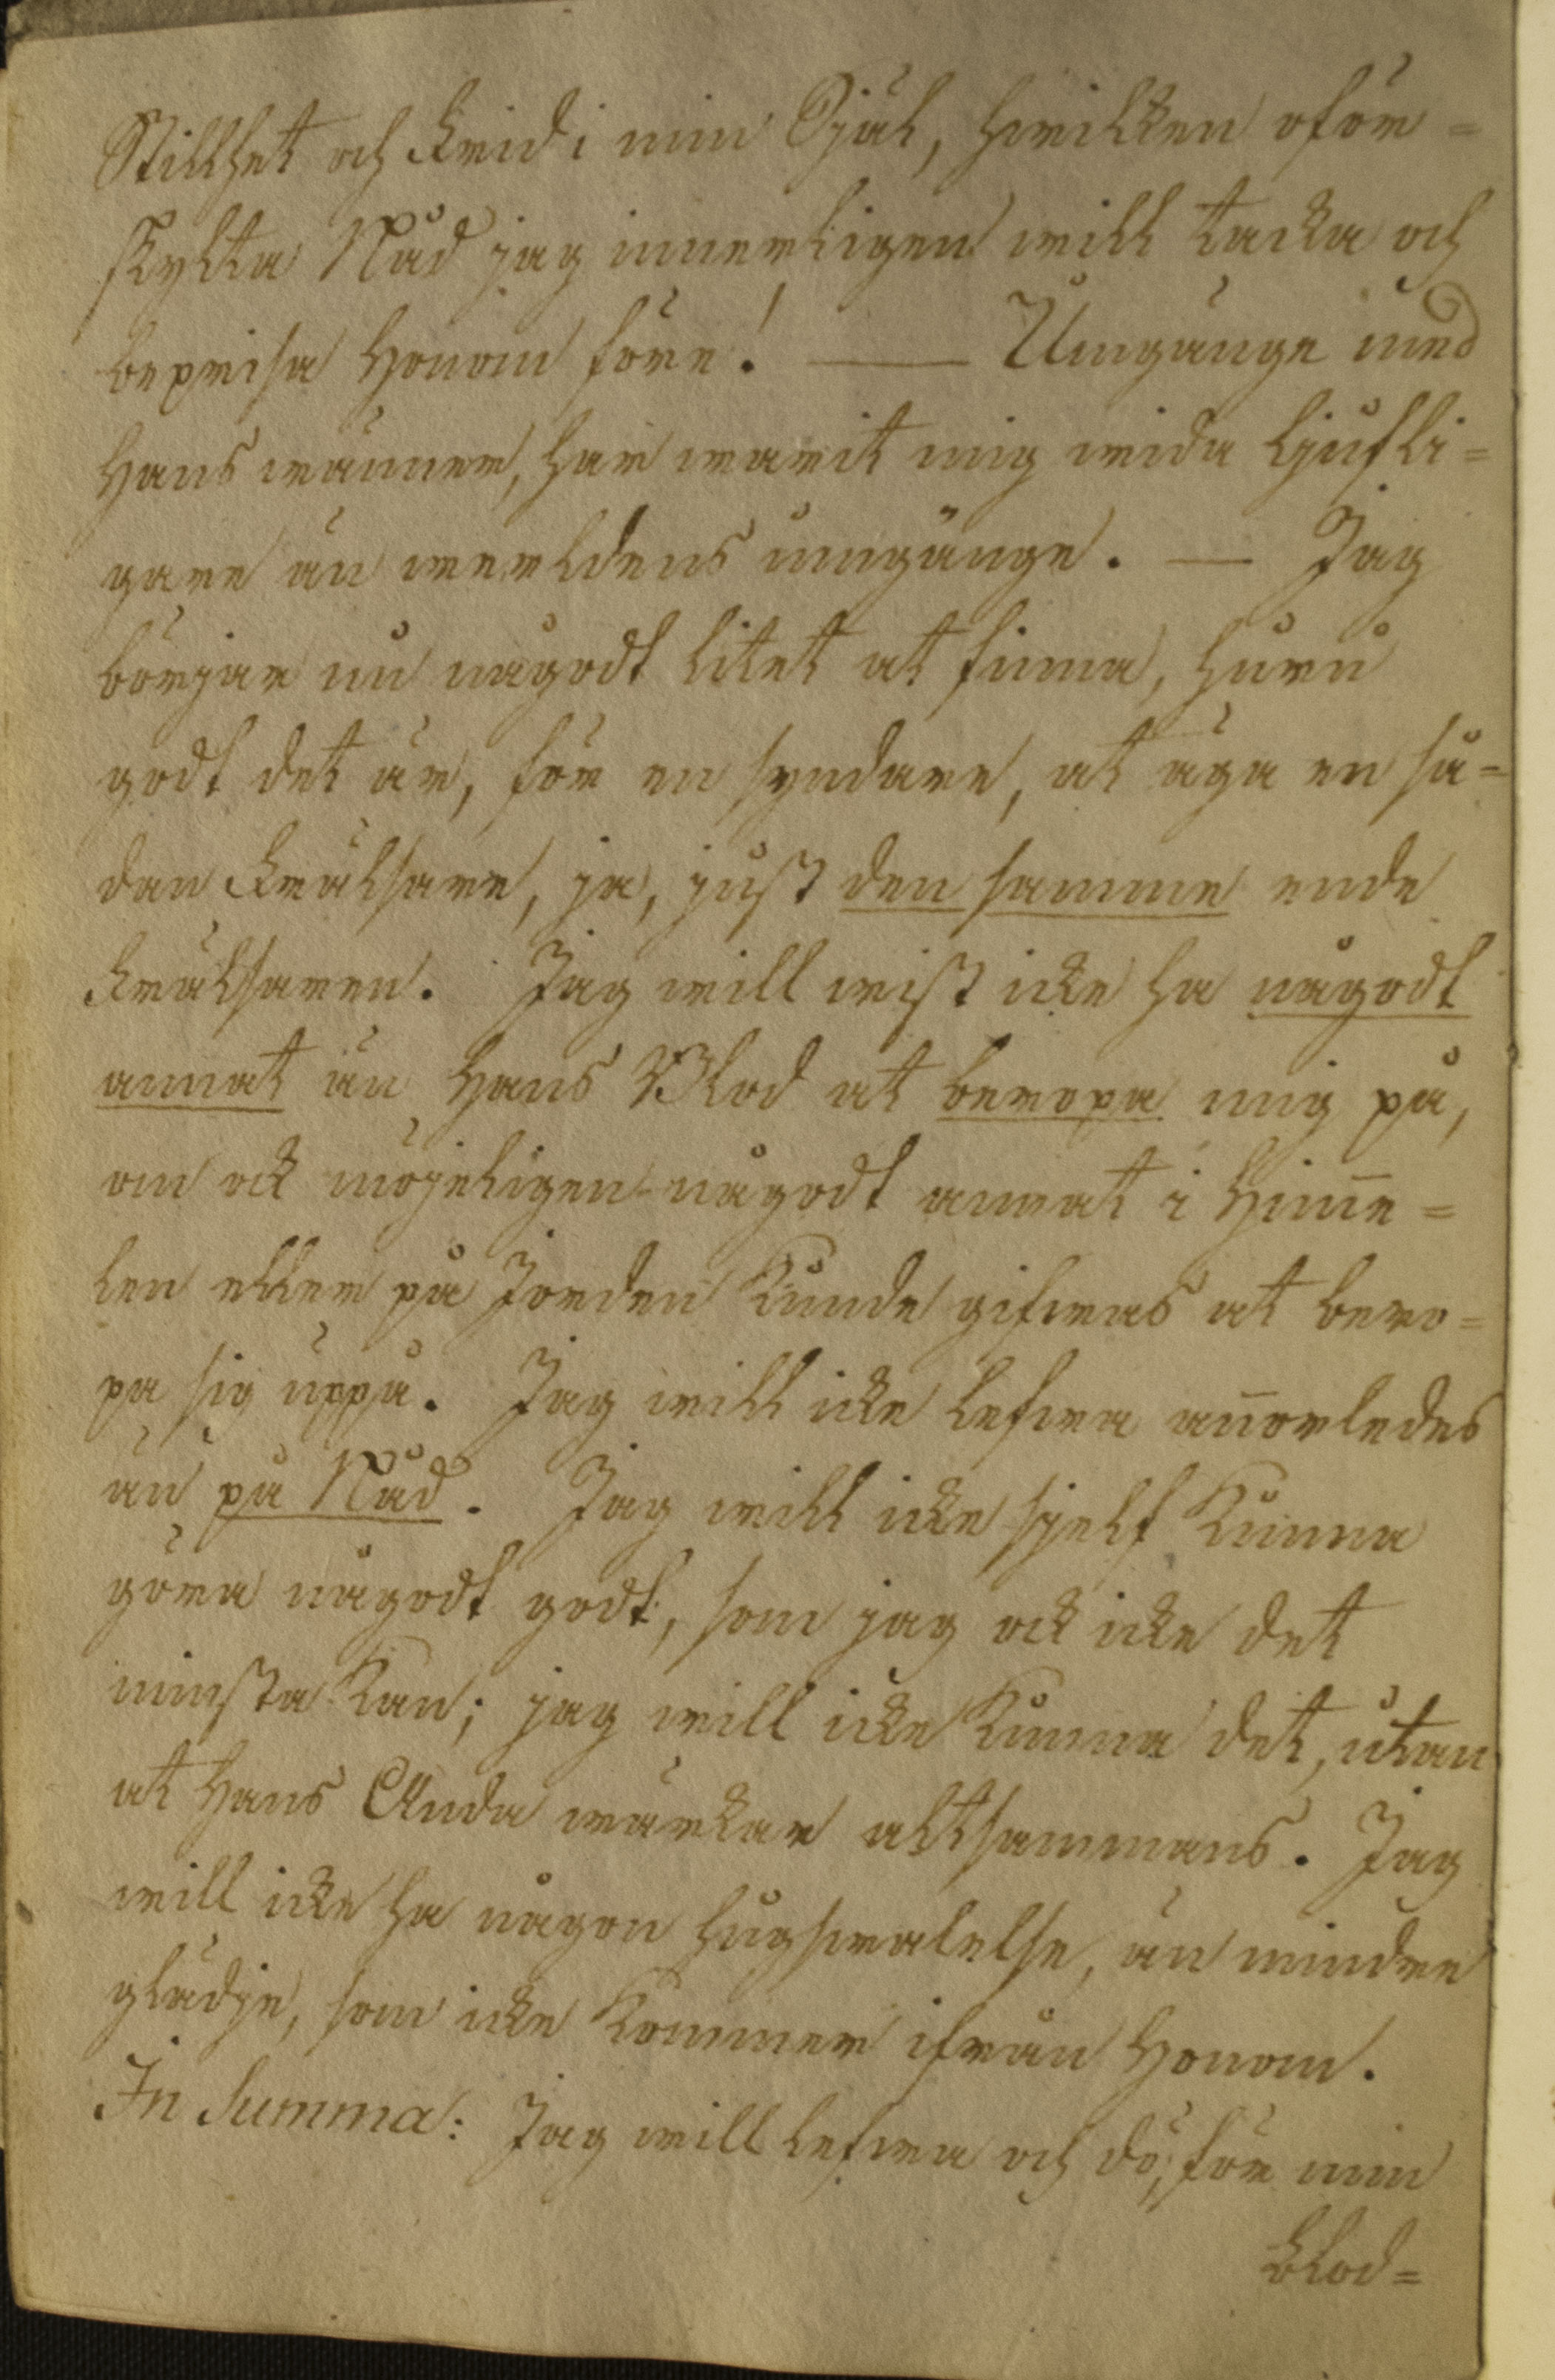 Stillhet och Frid i min Själ, hwilken oför=
skylta Nåd jag innerligen will tacka och
beprisa Honom före! — Umgänge med
Hans wänner, har warit mig wida ljufli=
gare än werldens umgänge. — Jag
börjar nu något litet at finna, huru
godt det är, för en syndare, at äga en så=
dan Frälsare, ja, just den samme ende
Frälsaren. Jag will wist icke ha något
annat än Hans Blod at beropa mig på,
om ock möjeligen något annat i Him̅e=
len eller på Jorden kunde gifwas at bero=
pa sig uppå. Jag will icke lefwa an̅orledes
än på Nåd. Jag will icke sjelf kunna
göra något godt, som jag ock icke det
minsta kan; jag will icke kunna det, utan
at Hans Anda wärkar altsammans. Jag
will icke ha någon hugswalelse, än mindre
glädje, som icke kommer ifrån Honom.
In Summa: Jag will lefwa och dö, för min
Blod=